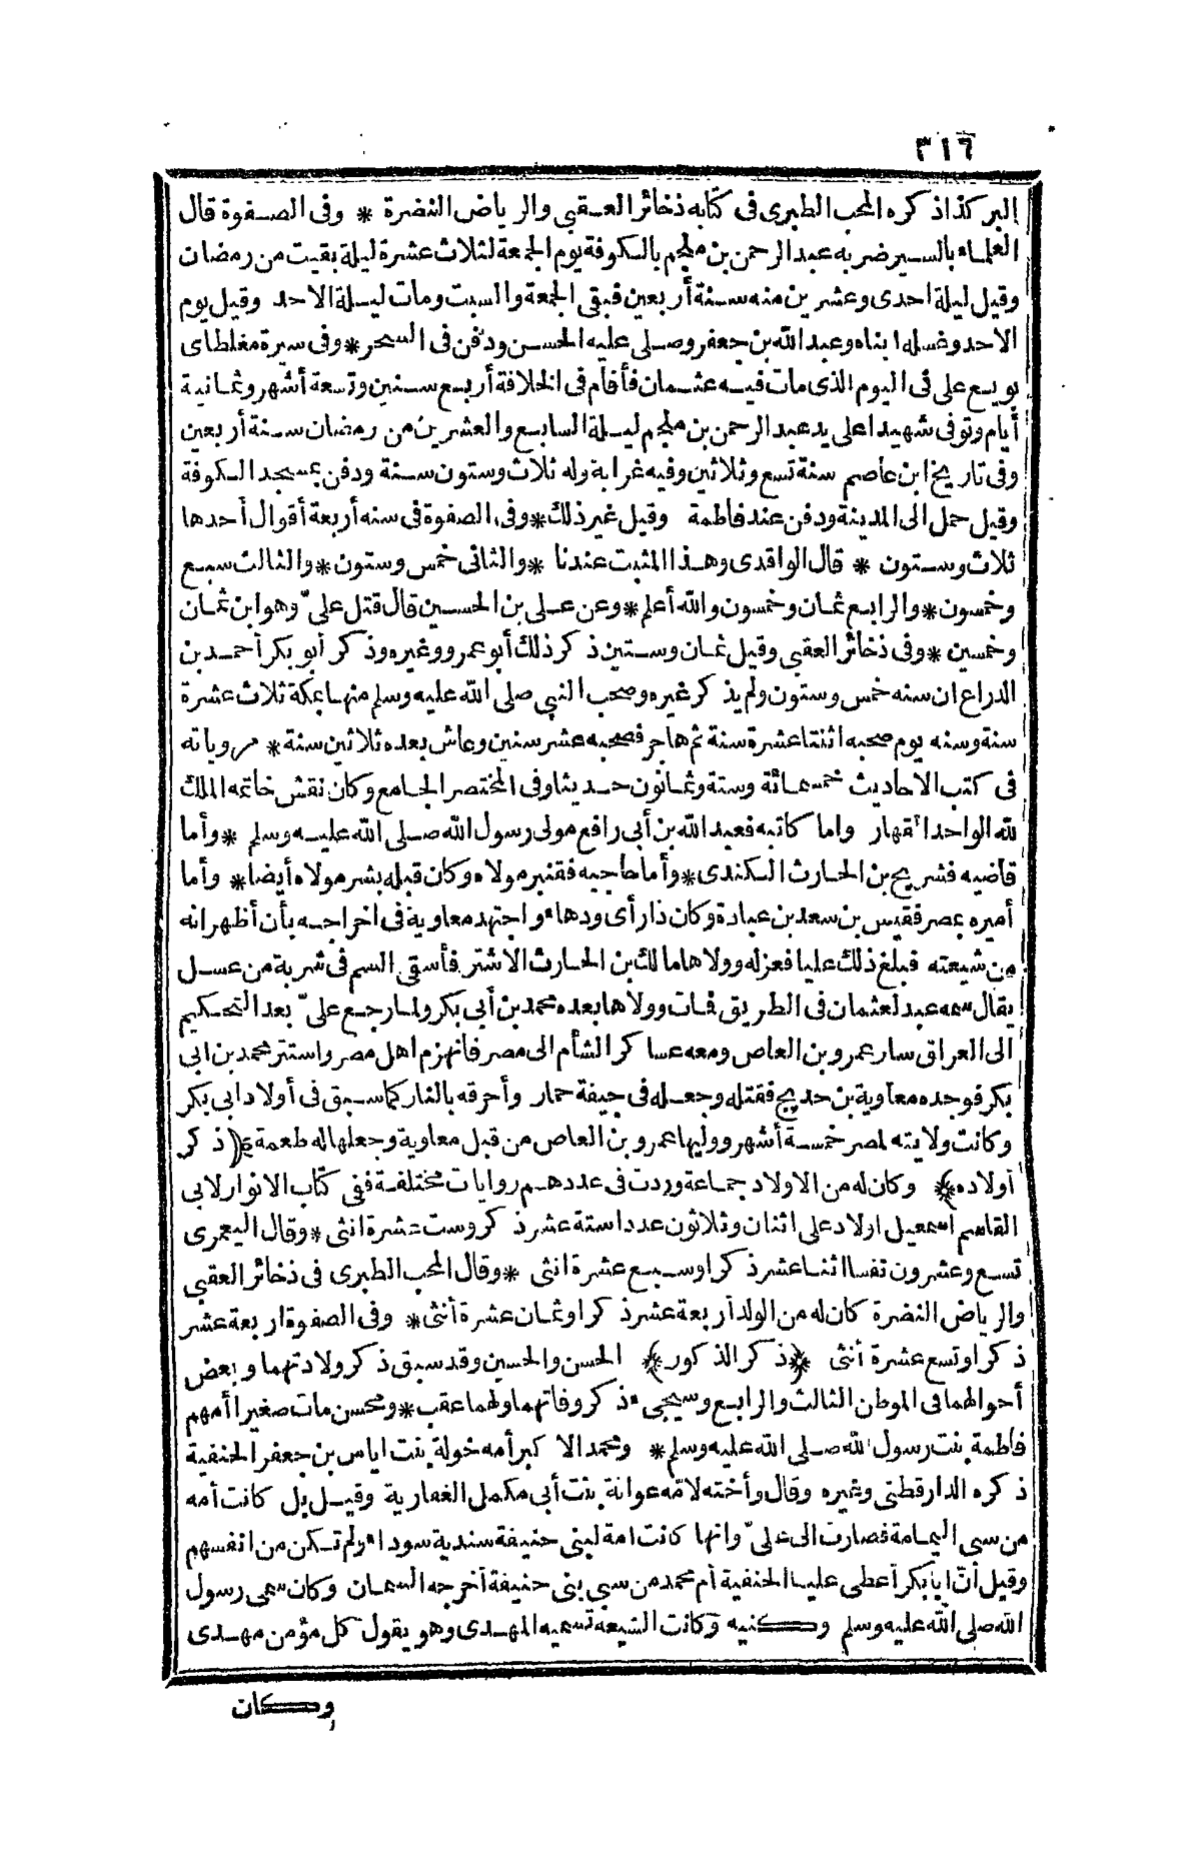 ٣١٦
البر كذا ذكره المحب الطبرى فى كتابه ذخائر العقبى والرياض النضرة * وفى الصفوة قال
العلماء بالسير ضربه عبد الرحمن بن ملجم بالكوفة يوم الجمعة لثلاث عشرة ليلة بقيت من رمضان
وقيل ليلة احدى وعشرين منه سنة أربعين فبقى الجمعة والسبت ومات ليلة الاحد وقيل يوم
الاحد وغسله ابناه وعبد الله بن جعفر وصلى عليه الحسن ودفن فى السحر * وفى سيرة مغلطاى
بويع على فى اليوم الذى مات فيه عثمان فأقام فى الخلافة أربع سنين وتسعة أشهر وثمانية
أيام وتوفى شهيدا على يد عبد الرحمن بن ملجم ليلة السابع والعشرين من رمضان سنة أربعين
وفى تاريخ ابن عاصم سنة تسع وثلاثين وفيه غرابة وله ثلاث وستون سنة ودفن بمسجد الكوفة
وقيل حمل الى المدينة ودفن عند فاطمة وقيل غير ذلك * وفى الصفوة فى سنه أربعة أقوال أحدها
ثلاث وستون * قال الواقدى وهذا المثبت عندنا * والثانى خمس وستون * والثالث سبع
وخمسون * والرابع ثمان وخمسون والله أعلم * وعن على بن الحسين قال قتل علىّ وهو ابن ثمان
وخمسين * وفى ذخائر العقبى وقيل ثمان وستين ذكر ذلك أبو عمرو وغيره وذكر أبو بكر أحمد بن
الدراع ان سنه خمس وستون ولم يذكر غيره وصحب النبى صلى الله عليه وسلم منها بمكة ثلاث عشرة
سنة وسنه يوم صحبه اثنتا عشرة سنة ثم هاجر فصحبه عشر سنين وعاش بعده ثلاثين سنة * مروياته
فى كتب الاحاديث خمسمائة وستة وثمانون حديثا وفى المختصر الجامع وكان نقش خاتمه الملك
لله الواحد القهار واما كاتبه فعبد الله بن أبى رافع مولى رسول الله صلى الله عليه وسلم * وأما
قاضيه فشريح بن الحارث الكندى * وأما حاجبه فقنبر مولاه وكان قبله بشر مولاه أيضا * وأما
أميره بمصر فقيس بن سعد بن عبادة وكان ذا رأى ودهاء واجتهد معاوية فى اخراجه بأن أظهر انه
من شيعته فبلغ ذلك عليا فعزله وولاها مالك بن الحارث الاشتر فأسقى السم فى شربة من عسل
يقال سمه عبد لعثمان فى الطريق فمات وولاها بعده محمد بن أبى بكر ولما رجع علىّ بعد التحكيم
الى العراق سار عمرو بن العاص ومعه عساكر الشأم الى مصر فانهزم اهل مصر واستتر محمد بن ابى
بكر فوجده معاوية بن حديج فقتله وجعله فى جيفة حمار وأحرقه بالنار كما سبق فى أولاد ابى بكر
وكانت ولايته لمصر خمسة أشهر ووليها عمرو بن العاص من قبل معاوية وجعلها له طعمة * (ذكر
أولاده) * وكان له من الاولاد جماعة وردت فى عددهم روايات مختلفة ففى كتاب الانوار لابى
القاسم اسمعيل اولاد على اثنان وثلاثون عددا ستة عشر ذكر وست عشرة انثى * وقال اليعمرى
تسع وعشرون نفسا اثنا عشر ذكرا وسبع عشرة انثى * وقال المحب الطبرى فى ذخائر العقبى
والرياض النضرة كان له من الولد أربعة عشر ذكرا وثمان عشرة أنثى * وفى الصفوة أربعة عشر
ذكرا وتسع عشرة أنثى * (ذكر الذكور) * الحسن والحسين وقد سبق ذكر ولادتهما وبعض
أحوالهما فى الموطن الثالث والرابع وسيجىء ذكر وفاتهما ولهما عقب * ومحسن مات صغيرا أمهم
فاطمة بنت رسول الله صلى الله عليه وسلم * ومحمد الاكبر أمه خولة بنت اياس بن جعفر الحنفية
ذكره الدارقطنى وغيره وقال وأخته لامّه عوانة بنت أبى مكمل الغفارية وقيل بل كانت أمه
من سبى اليمامة فصارت الى علىّ وانها كانت امة لبنى حنيفة سندية سوداء ولم تكن من انفسهم
وقيل أنّ ابا بكر أعطى عليا الحنفية أم محمد من سبى بنى حنيفة أخرجه السمان وكان سمى رسول
الله صلى الله عليه وسلم وكنيه وكانت الشيعة تسميه المهدى وهو يقول كل مؤمن مهدى
وكان